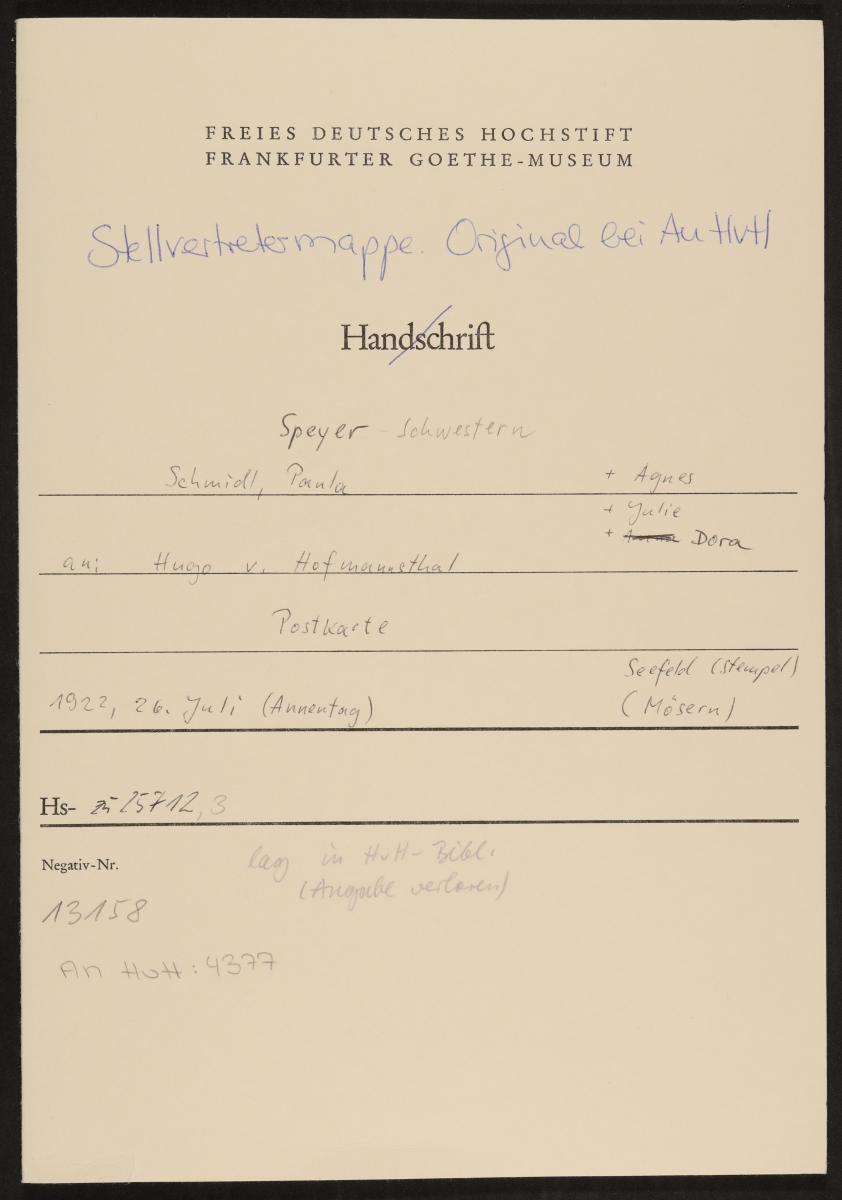 FREIES DEUTSCHES HOCHSTIFT
FRANKFURTER GOETHE-MUSEUM
Stellvertretermappe. Original bei An HvH
Handschrift
Speyer - Schwestern
Schmidl, Paula + Agnes
+ Julie
+ Dora
an: Hugo v. Hofmannsthal
Postkarte
Seefeld (Stempel)
1922, 26. Juli (Annentag) (Mösern)
Hs- zu 25712,3
Negativ-Nr. lag in HvH-Bibl.
(Angabe verloren)
13158
An HvH: 4377